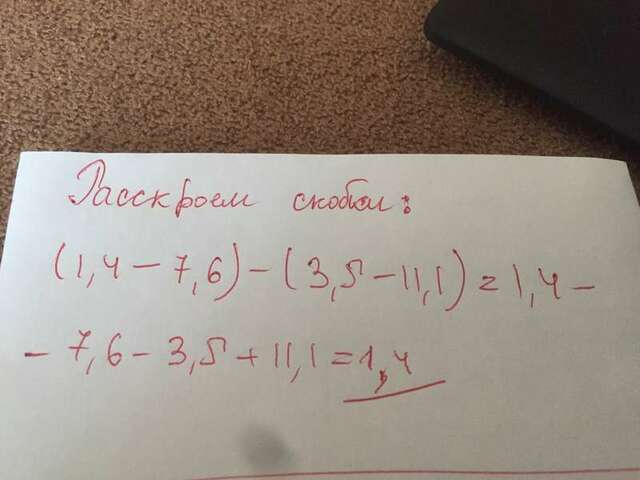 Расскроем скобки:
(1,4 - 7,6) - (3,5 - 11,1) = 1,4 -
- 7,6 - 3,5 + 11,1 = 1,4